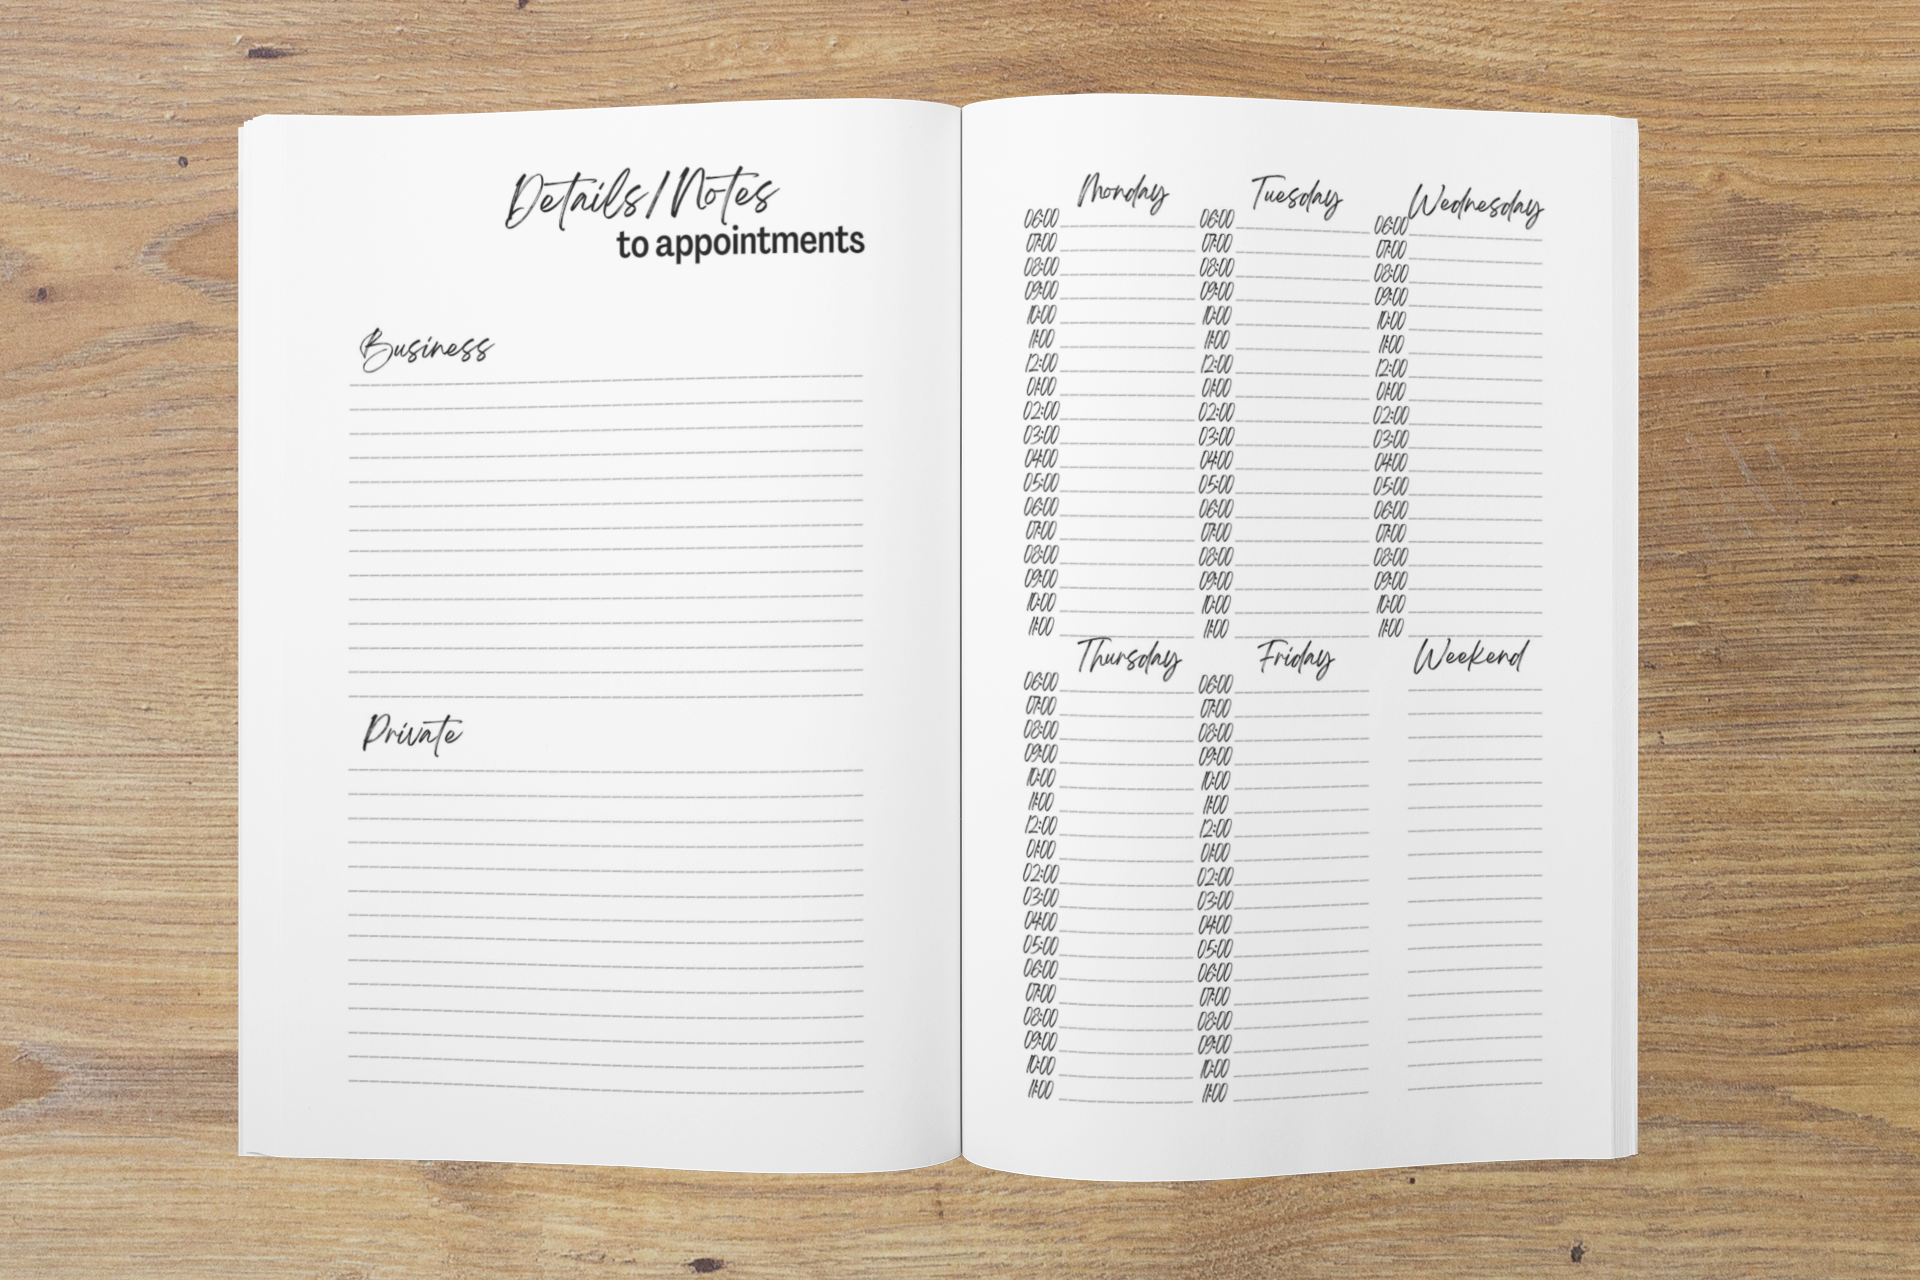 Details/Notes
to appointments
Business
Private
Monday
06:00
07:00
08:00
09:00
10:00
11:00
12:00
01:00
02:00
03:00
04:00
05:00
06:00
07:00
08:00
09:00
10:00
11:00
Tuesday
06:00
07:00
08:00
09:00
10:00
11:00
12:00
01:00
02:00
03:00
04:00
05:00
06:00
07:00
08:00
09:00
10:00
11:00
Wednesday
06:00
07:00
08:00
09:00
10:00
11:00
12:00
01:00
02:00
03:00
04:00
05:00
06:00
07:00
08:00
09:00
10:00
11:00
Thursday
06:00
07:00
08:00
09:00
10:00
11:00
12:00
01:00
02:00
03:00
04:00
05:00
06:00
07:00
08:00
09:00
10:00
11:00
Friday
06:00
07:00
08:00
09:00
10:00
11:00
12:00
01:00
02:00
03:00
04:00
05:00
06:00
07:00
08:00
09:00
10:00
11:00
Weekend